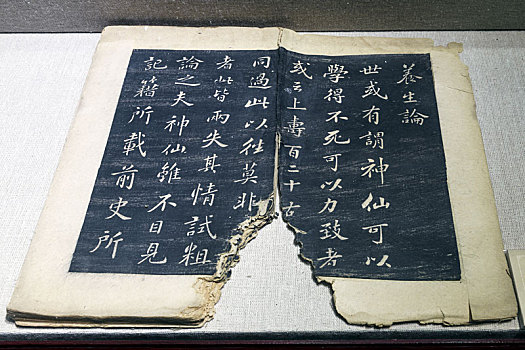 養生論
世或有謂神仙可以
學得不死可以力致者
或云上壽百二十古
同過此以往莫非
者此皆兩失其情試粗
論之夫神仙雖不目見
記籍所載前史所